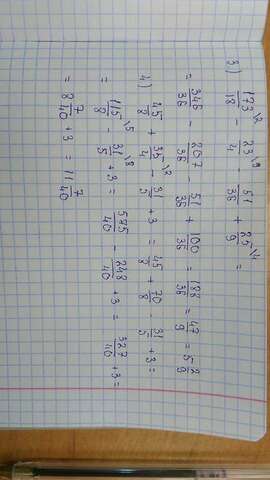 3) 173/18 \2 - 23/4 \9 - 51/36 + 25/9 \4 =
= 346/36 - 207/36 - 51/36 + 100/36 = 188/36 = 47/9 = 5 2/9
4) 45/8 + 35/4 \2 - 31/5 + 3 = 45/8 + 70/8 - 31/5 + 3 =
= 115/8 \5 - 31/5 \8 + 3 = 575/40 - 248/40 + 3 = 327/40 + 3 =
= 8 7/40 + 3 = 11 7/40